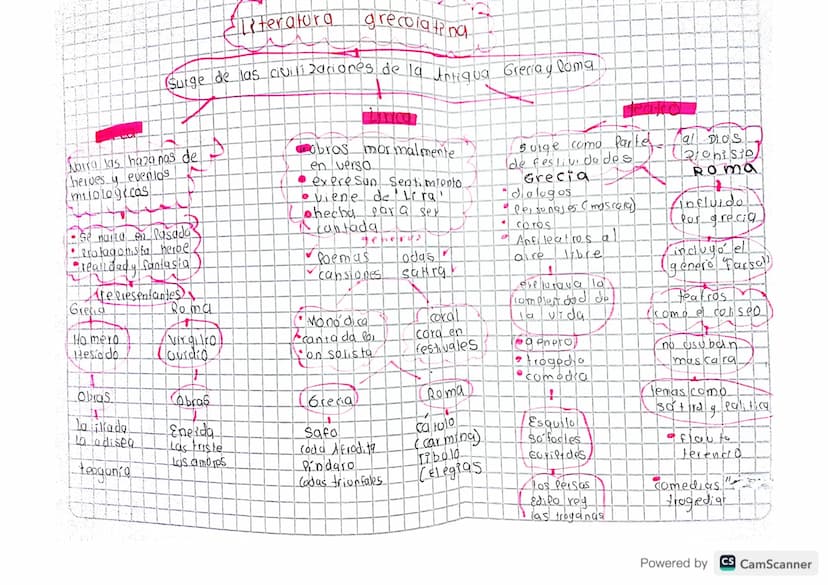 Literatura grecolatina
Surge de las civilizaciones de la Antigua Grecia y Roma
Narra las hazañas de
heroes y eventos
mitologicos
• Se narra en Pasado
• Protagonista heroe
• realidad y fantasia
representantes
Grecia
Homero
Hesiodo
Obras
la iliada
la odisea
teogonia
Roma
Virgilio
Ovidio
Obras
Eneida
Las triste
Los amores
Lirica
• obras mormalmente
en verso
• expresan sentimiento
• viene de "lira"
• hecha para ser
cantada
generos
✓ Poemas odas
✓ cansiones satira
• Monódica
cantada por
un solista
coral
cora en
festivales
Grecia
Safo
coda Afrodita
Píndaro
codas triunfales
Roma
Cátulo
(carmina)
Tibulo
(Elegias
teatro
surge como Parte
de festividades
al DIOS
Dionisio
GRECIA
• dialogos
• Personajes (mascara)
• coros
• Anfiteatros al
aire libre
explorava la
complejidad de
la vida
• genero
• tragedia
• comedia
Esquilo
sofocles
euripides
los Persas
edipo rey
las troyanas
ROMA
influido
Por grecia
incluyó el
género "farsa"
teatros
como el coliseo
no usuban
mascara
temas como
sátira y politica
terencio
comedias
tragedias
Powered by CS CamScanner